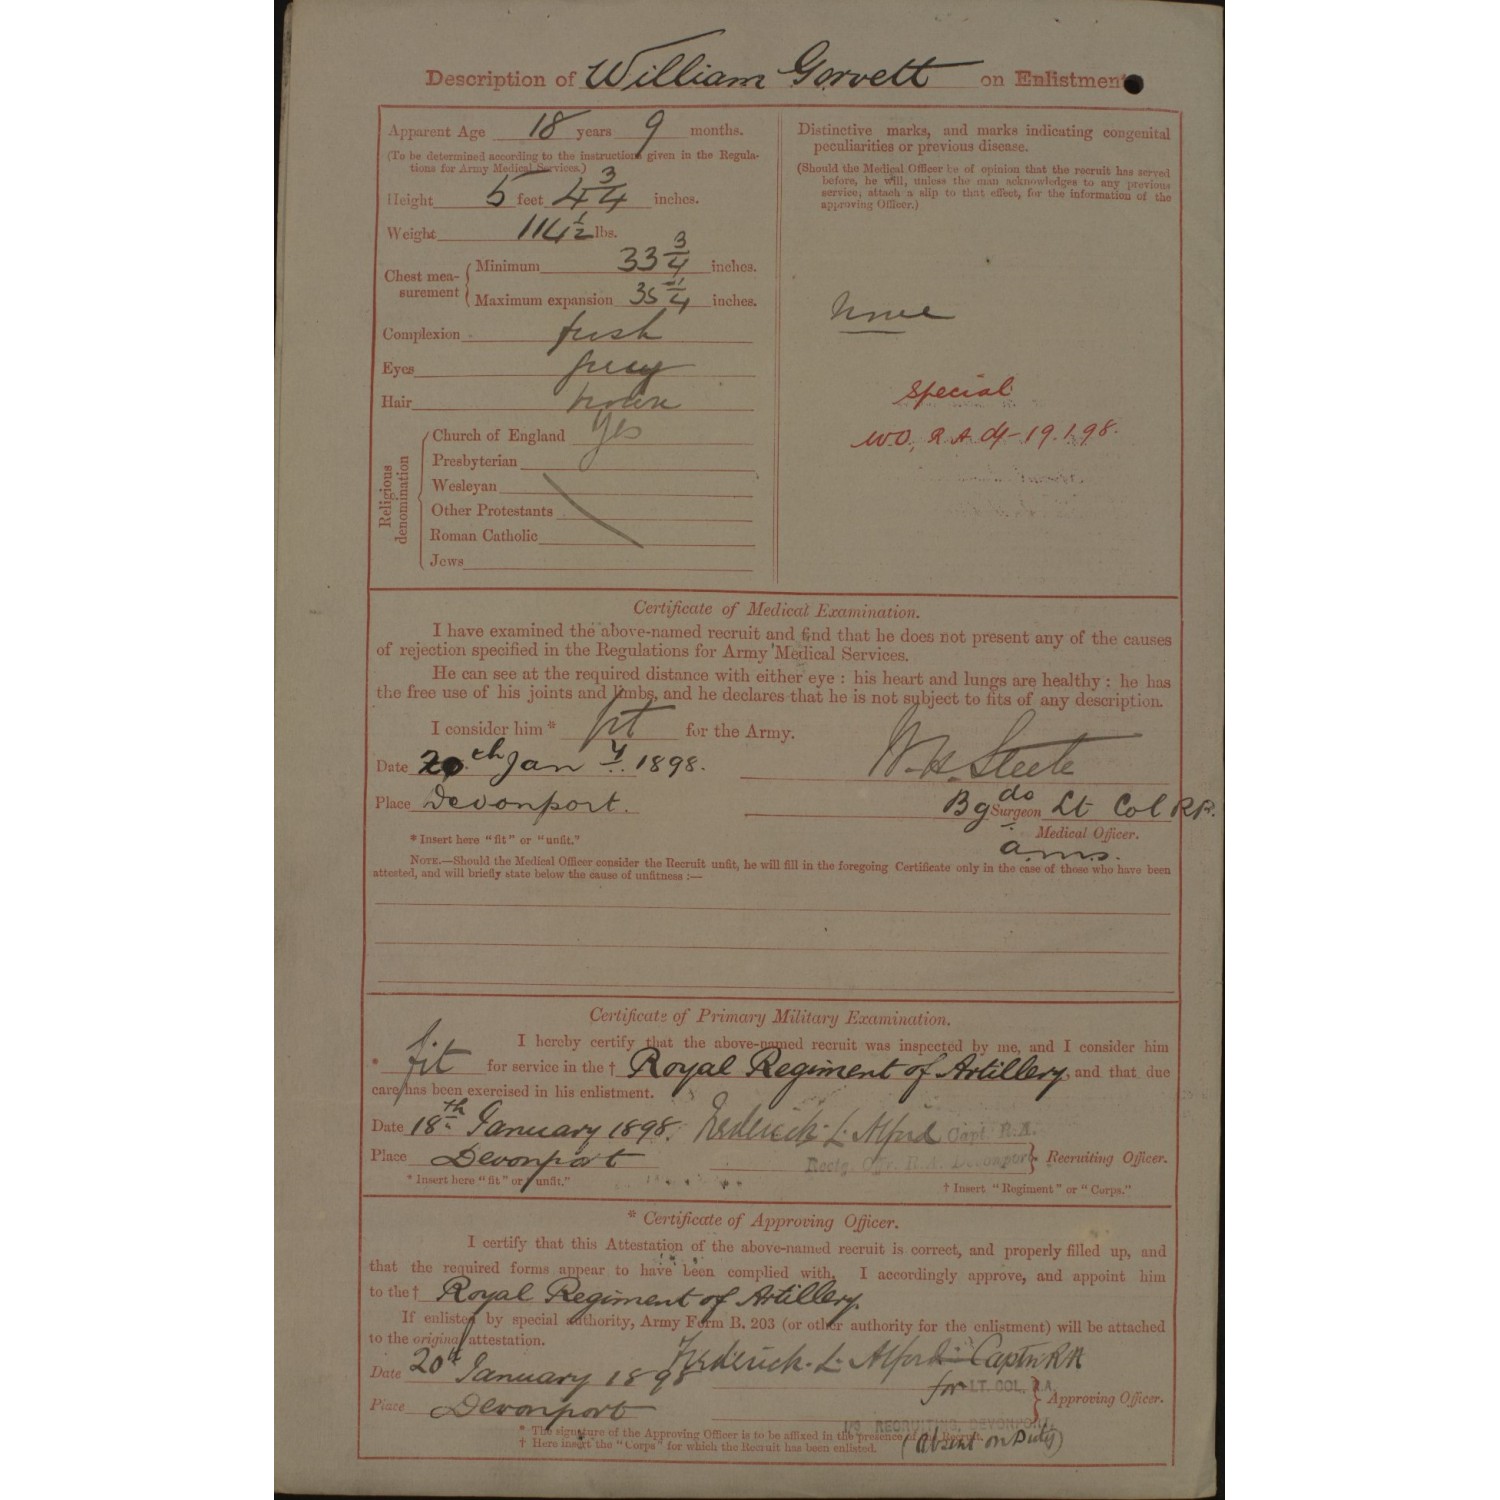 Description of William Gorvett on Enlistment
Apparent Age 18 years 9 months.
(To be determined according to the instructions given in the Regula-
tions for Army Medical Services.)
Height 5 feet 4 3/4 inches.
Weight 114 1/2 lbs.
Chest mea-
surement
Minimum 33 3/4 inches.
Maximum expansion 35 1/4 inches.
Complexion fresh
Eyes grey
Hair brown
Religious denomination
Church of England Yes
Presbyterian
Wesleyan
Other Protestants
Roman Catholic
Jews
Distinctive marks, and marks indicating congenital
peculiarities or previous disease.
(Should the Medical Officer be of opinion that the recruit has served
before, he will, unless the man acknowledges to any previous
service, attach a slip to that effect, for the information of the
approving Officer.)
None
Special
W.O, R.A. 19.1.98.
Certificate of Medical Examination.
I have examined the above-named recruit and find that he does not present any of the causes
of rejection specified in the Regulations for Army Medical Services.
He can see at the required distance with either eye : his heart and lungs are healthy : he has
the free use of his joints and limbs, and he declares that he is not subject to fits of any description.
I consider him * fit for the Army.
Date 20th Jany 1898.
W. H. Steele
Place Devonport.
Bgde Surgeon Lt Col RP.
Medical Officer.
A.M.S.
* Insert here "fit" or "unfit."
NOTE.—Should the Medical Officer consider the Recruit unfit, he will fill in the foregoing Certificate only in the case of those who have been
attested, and will briefly state below the cause of unfitness :—
Certificate of Primary Military Examination.
I hereby certify that the above-named recruit was inspected by me, and I consider him
* fit for service in the † Royal Regiment of Artillery and that due
care has been exercised in his enlistment.
Date 18th January 1898. Frederick. L. Alford Capt. R.A.
Place Devonport Rectg. Ofr. R.A. Devonport Recruiting Officer.
* Insert here "fit" or "unfit."
† Insert "Regiment" or "Corps."
* Certificate of Approving Officer.
I certify that this Attestation of the above-named recruit is correct, and properly filled up, and
that the required forms appear to have been complied with. I accordingly approve, and appoint him
to the † Royal Regiment of Artillery.
If enlisted by special authority, Army Form B. 203 (or other authority for the enlistment) will be attached
to the original attestation.
Date 20th January 1898 Frederick. L. Alford Captn RA
for LT. COL. R.A.
Approving Officer.
Place Devonport
RECRUITING, DEVONPORT.
(absent on Duty)
* The signature of the Approving Officer is to be affixed in the presence of the Recruit.
† Here insert the "Corps" for which the Recruit has been enlisted.